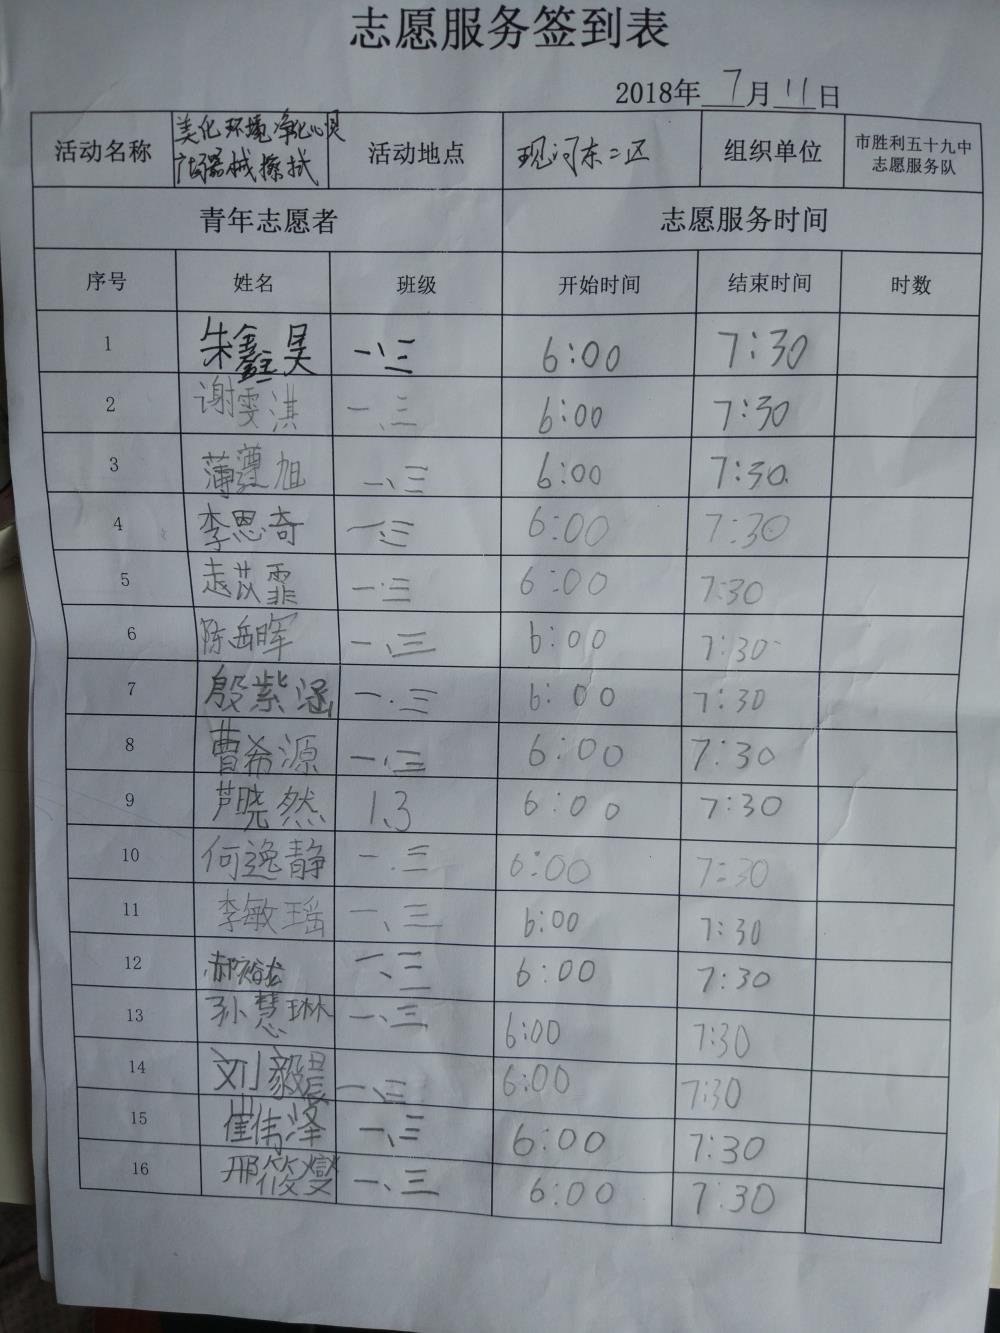 志愿服务签到表
2018年7月11日
活动名称 美化环境净化心灵 活动地点 现河东二区 组织单位 市胜利五十九中
器械擦拭 志愿服务队
青年志愿者 志愿服务时间
序号 姓名 班级 开始时间 结束时间 时数
1 朱鑫昊 一、三 6:00 7:30
2 谢雯淇 一、三 6:00 7:30
3 薄 旭 一、三 6:00 7:30
4 李恩奇 一、三 6:00 7:30
5 赵苡霏 一、三 6:00 7:30
6 陈岳晖 一、三 6:00 7:30
7 殷紫涵 一、三 6:00 7:30
8 曹希源 一、三 6:00 7:30
9 芦晓然 1、3 6:00 7:30
10 何逸静 一、三 6:00 7:30
11 李敏瑶 一、三 6:00 7:30
12 郝裕龙 一、三 6:00 7:30
13 孙慧琳 一、三 6:00 7:30
14 刘毅晨 一、三 6:00 7:30
15 崔伟泽 一、三 6:00 7:30
16 邢筱燮 一、三 6:00 7:30